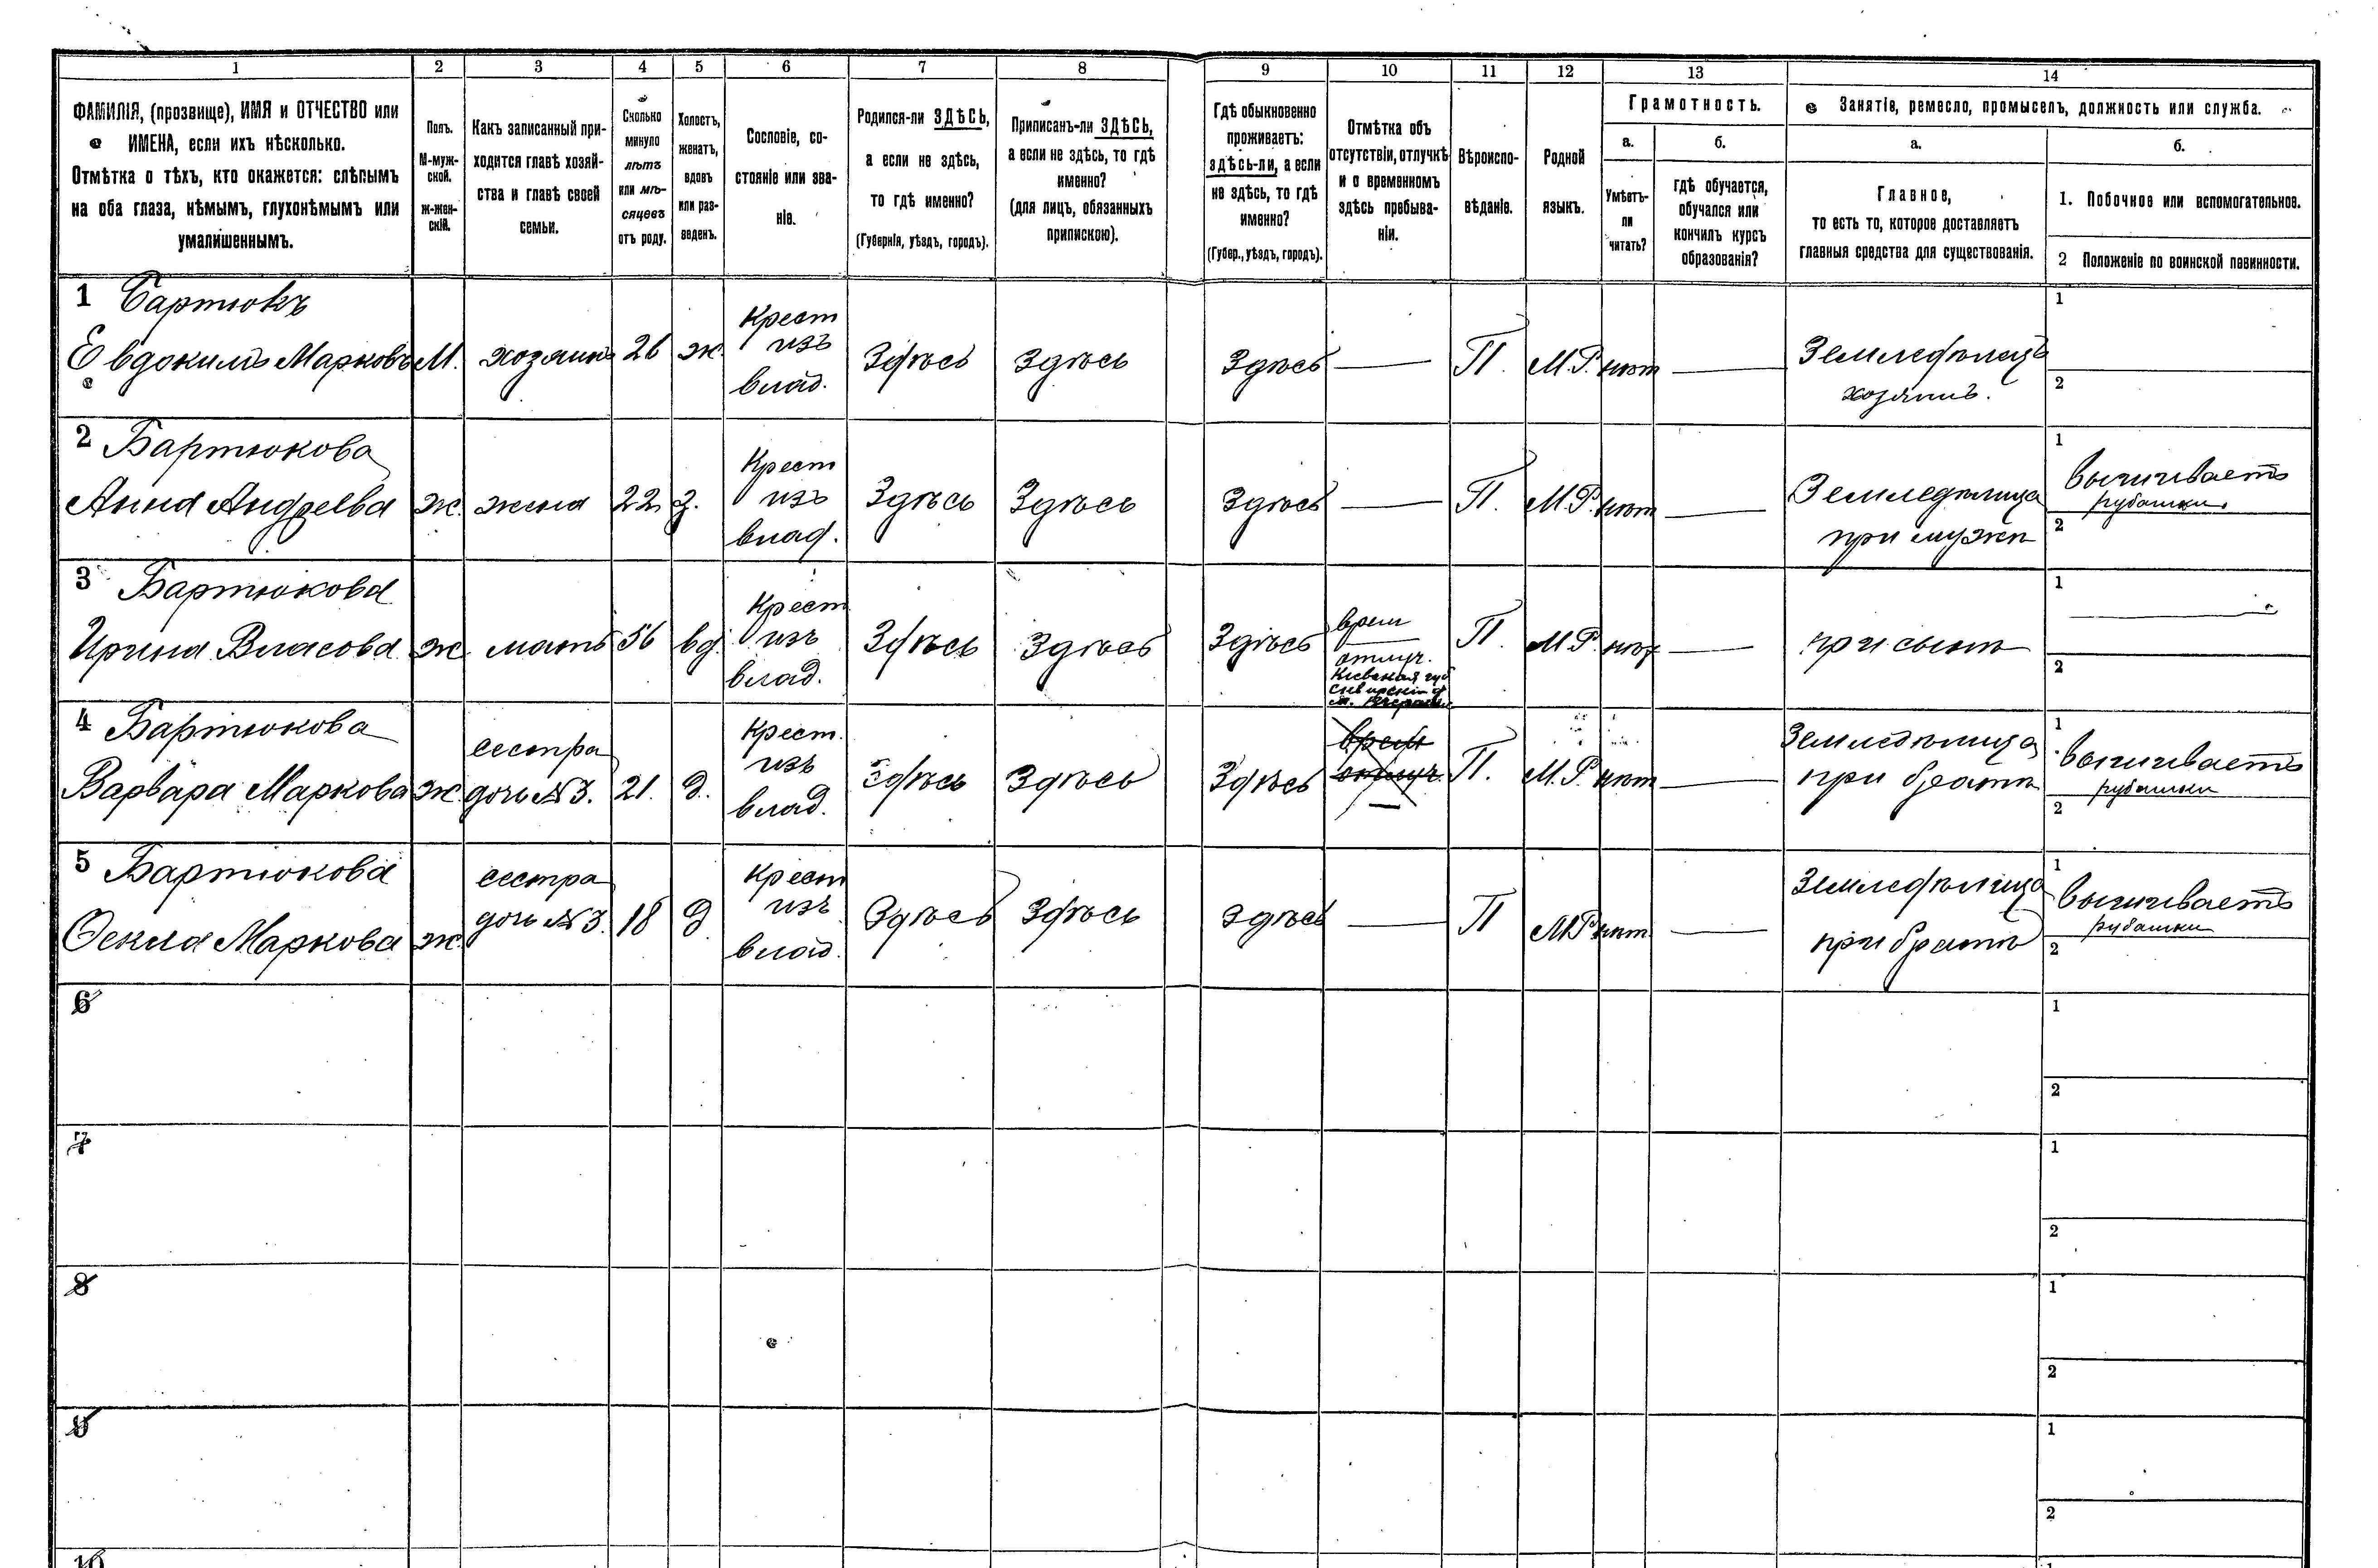 1 2 3 4 5 6 7 8 9 10 11 12 13 14
ФАМИЛІЯ, (прозвище), ИМЯ и ОТЧЕСТВО или
ИМЕНА, если ихъ нѣсколько.
Отмѣтка о тѣхъ, кто окажется: слѣпымъ
на оба глаза, нѣмымъ, глухонѣмымъ или
умалишеннымъ.
Полъ.
М-муж-
ской.
ж-жен-
скій.
Какъ записанный при-
ходится главѣ хозяй-
ства и главѣ своей
семьи.
Сколько
минуло
лѣтъ
или мѣ-
сяцевъ
отъ роду.
Холостъ,
женатъ,
вдовъ
или раз-
веденъ.
Сословіе, со-
стояніе или зва-
ніе.
Родился-ли ЗДѢСЬ,
а если не здѣсь,
то гдѣ именно?
(Губернія, уѣздъ, городъ).
Приписанъ-ли ЗДѢСЬ,
а если не здѣсь, то гдѣ
именно?
(для лицъ, обязанныхъ
припискою).
Гдѣ обыкновенно
проживаетъ:
здѣсь-ли, а если
не здѣсь, то гдѣ
именно?
(Губер., уѣздъ, городъ).
Отмѣтка объ
отсутствіи, отлучкѣ
и о временномъ
здѣсь пребыва-
ніи.
Вѣроиспо-
вѣданіе.
Родной
языкъ.
Грамотность.
а.
Умѣетъ-
ли
читать?
б.
гдѣ обучается,
обучался или
кончилъ курсъ
образованія?
Занятіе, ремесло, промыселъ, должность или служба.
а.
Главное,
то есть то, которое доставляетъ
главныя средства для существованія.
б.
1. Побочное или вспомогательное.
2 Положеніе по воинской повинности.
1 Бартюкъ
Евдокимъ Марковъ
М.
хозяинъ
26
ж.
Крест
изъ
влад.
Здѣсь
Здѣсь
Здѣсь
—
П.
М.Р.
нѣт
—
Земледѣлецъ
хозяинъ.
1
2
2 Бартюкова
Анна Андреева
ж.
жена
22
з.
Крест
изъ
влад.
Здѣсь
Здѣсь
Здѣсь
—
П.
М.Р.
нѣт
—
Земледѣлица
при мужѣ
1
вышиваетъ
рубашки.
2
3 Бартюкова
Ирина Власова
ж
мать
56
вд.
Крест
изъ
влад.
Здѣсь
Здѣсь
Здѣсь
врем
отлуч.
Кіевская губ
П.
М.Р.
нѣт
—
при сынѣ
1
—
2
4 Бартюкова
Варвара Маркова
ж.
сестра
дочь №3.
21.
д.
Крест.
изъ
влад.
Здѣсь
Здѣсь
Здѣсь
врем
отлуч.
—
П.
М.Р.
нѣт
—
Земледѣлица
при братѣ
1
вышиваетъ
рубашки
2
5 Бартюкова
Ѳекла Маркова
ж.
сестра
дочь №3.
18
д
Крест
изъ
влад.
Здѣсь
Здѣсь
Здѣсь
—
П
М.Р.
нѣт
—
Земледѣлица
при братѣ
1
вышиваетъ
рубашки
2
6
1
2
7
1
2
8
1
2
9
1
2
10
1